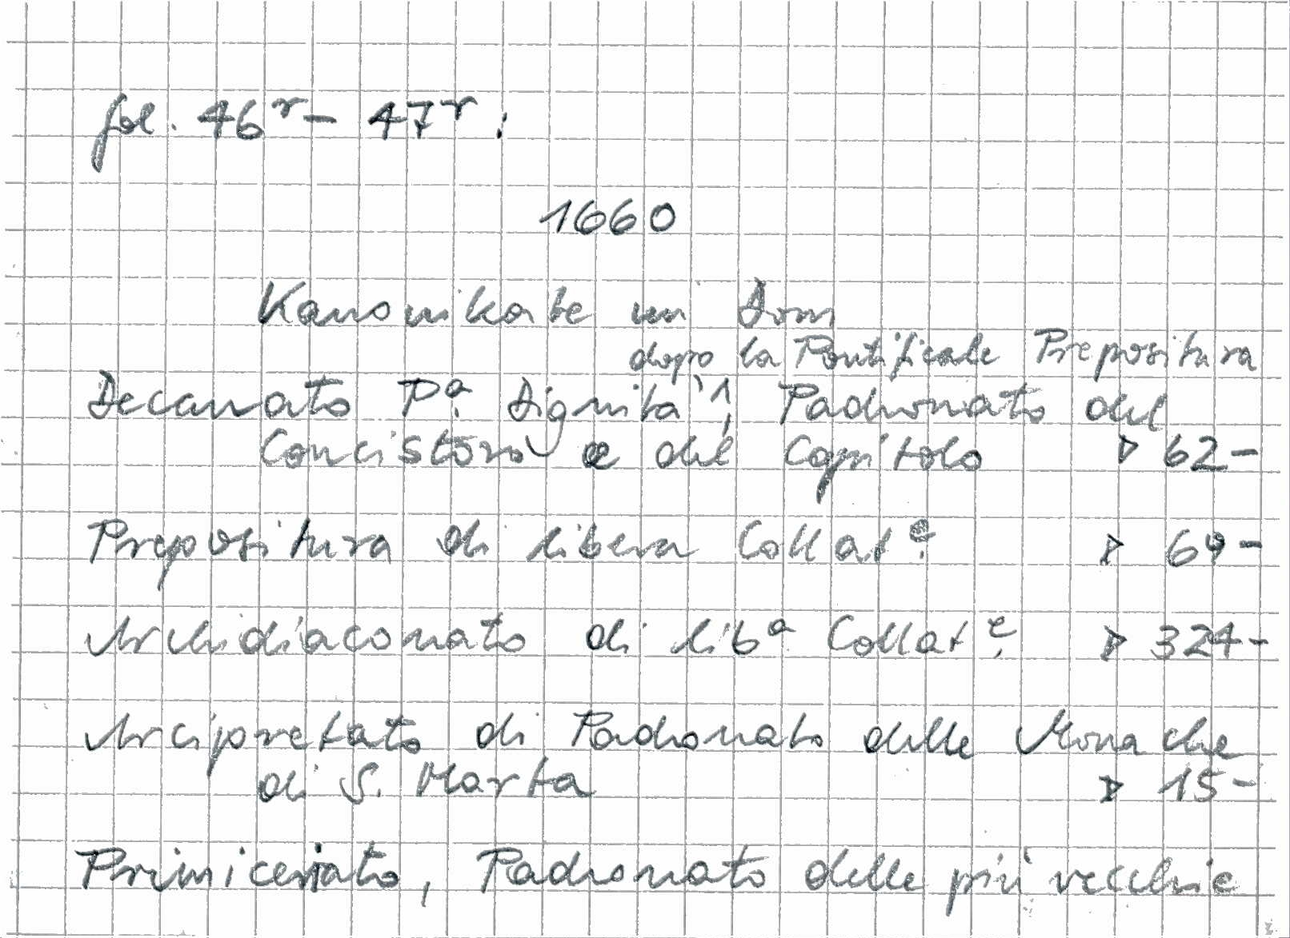 fol. 46r – 47r:
1660
Kanonikate im Dom
dopo la Pontificale Prepositura
Decanato Pa. Dignità, Padronato del
Concistoro e del Capitolo ▷ 62–
Prepositura di libera Collat.e ▷ 69–
Archidiaconato di liba Collat.e ▷ 324–
Arcipretato di Padronato delle Monache
di S. Marta ▷ 15–
Primiceriato, Padronato delle più vecchie